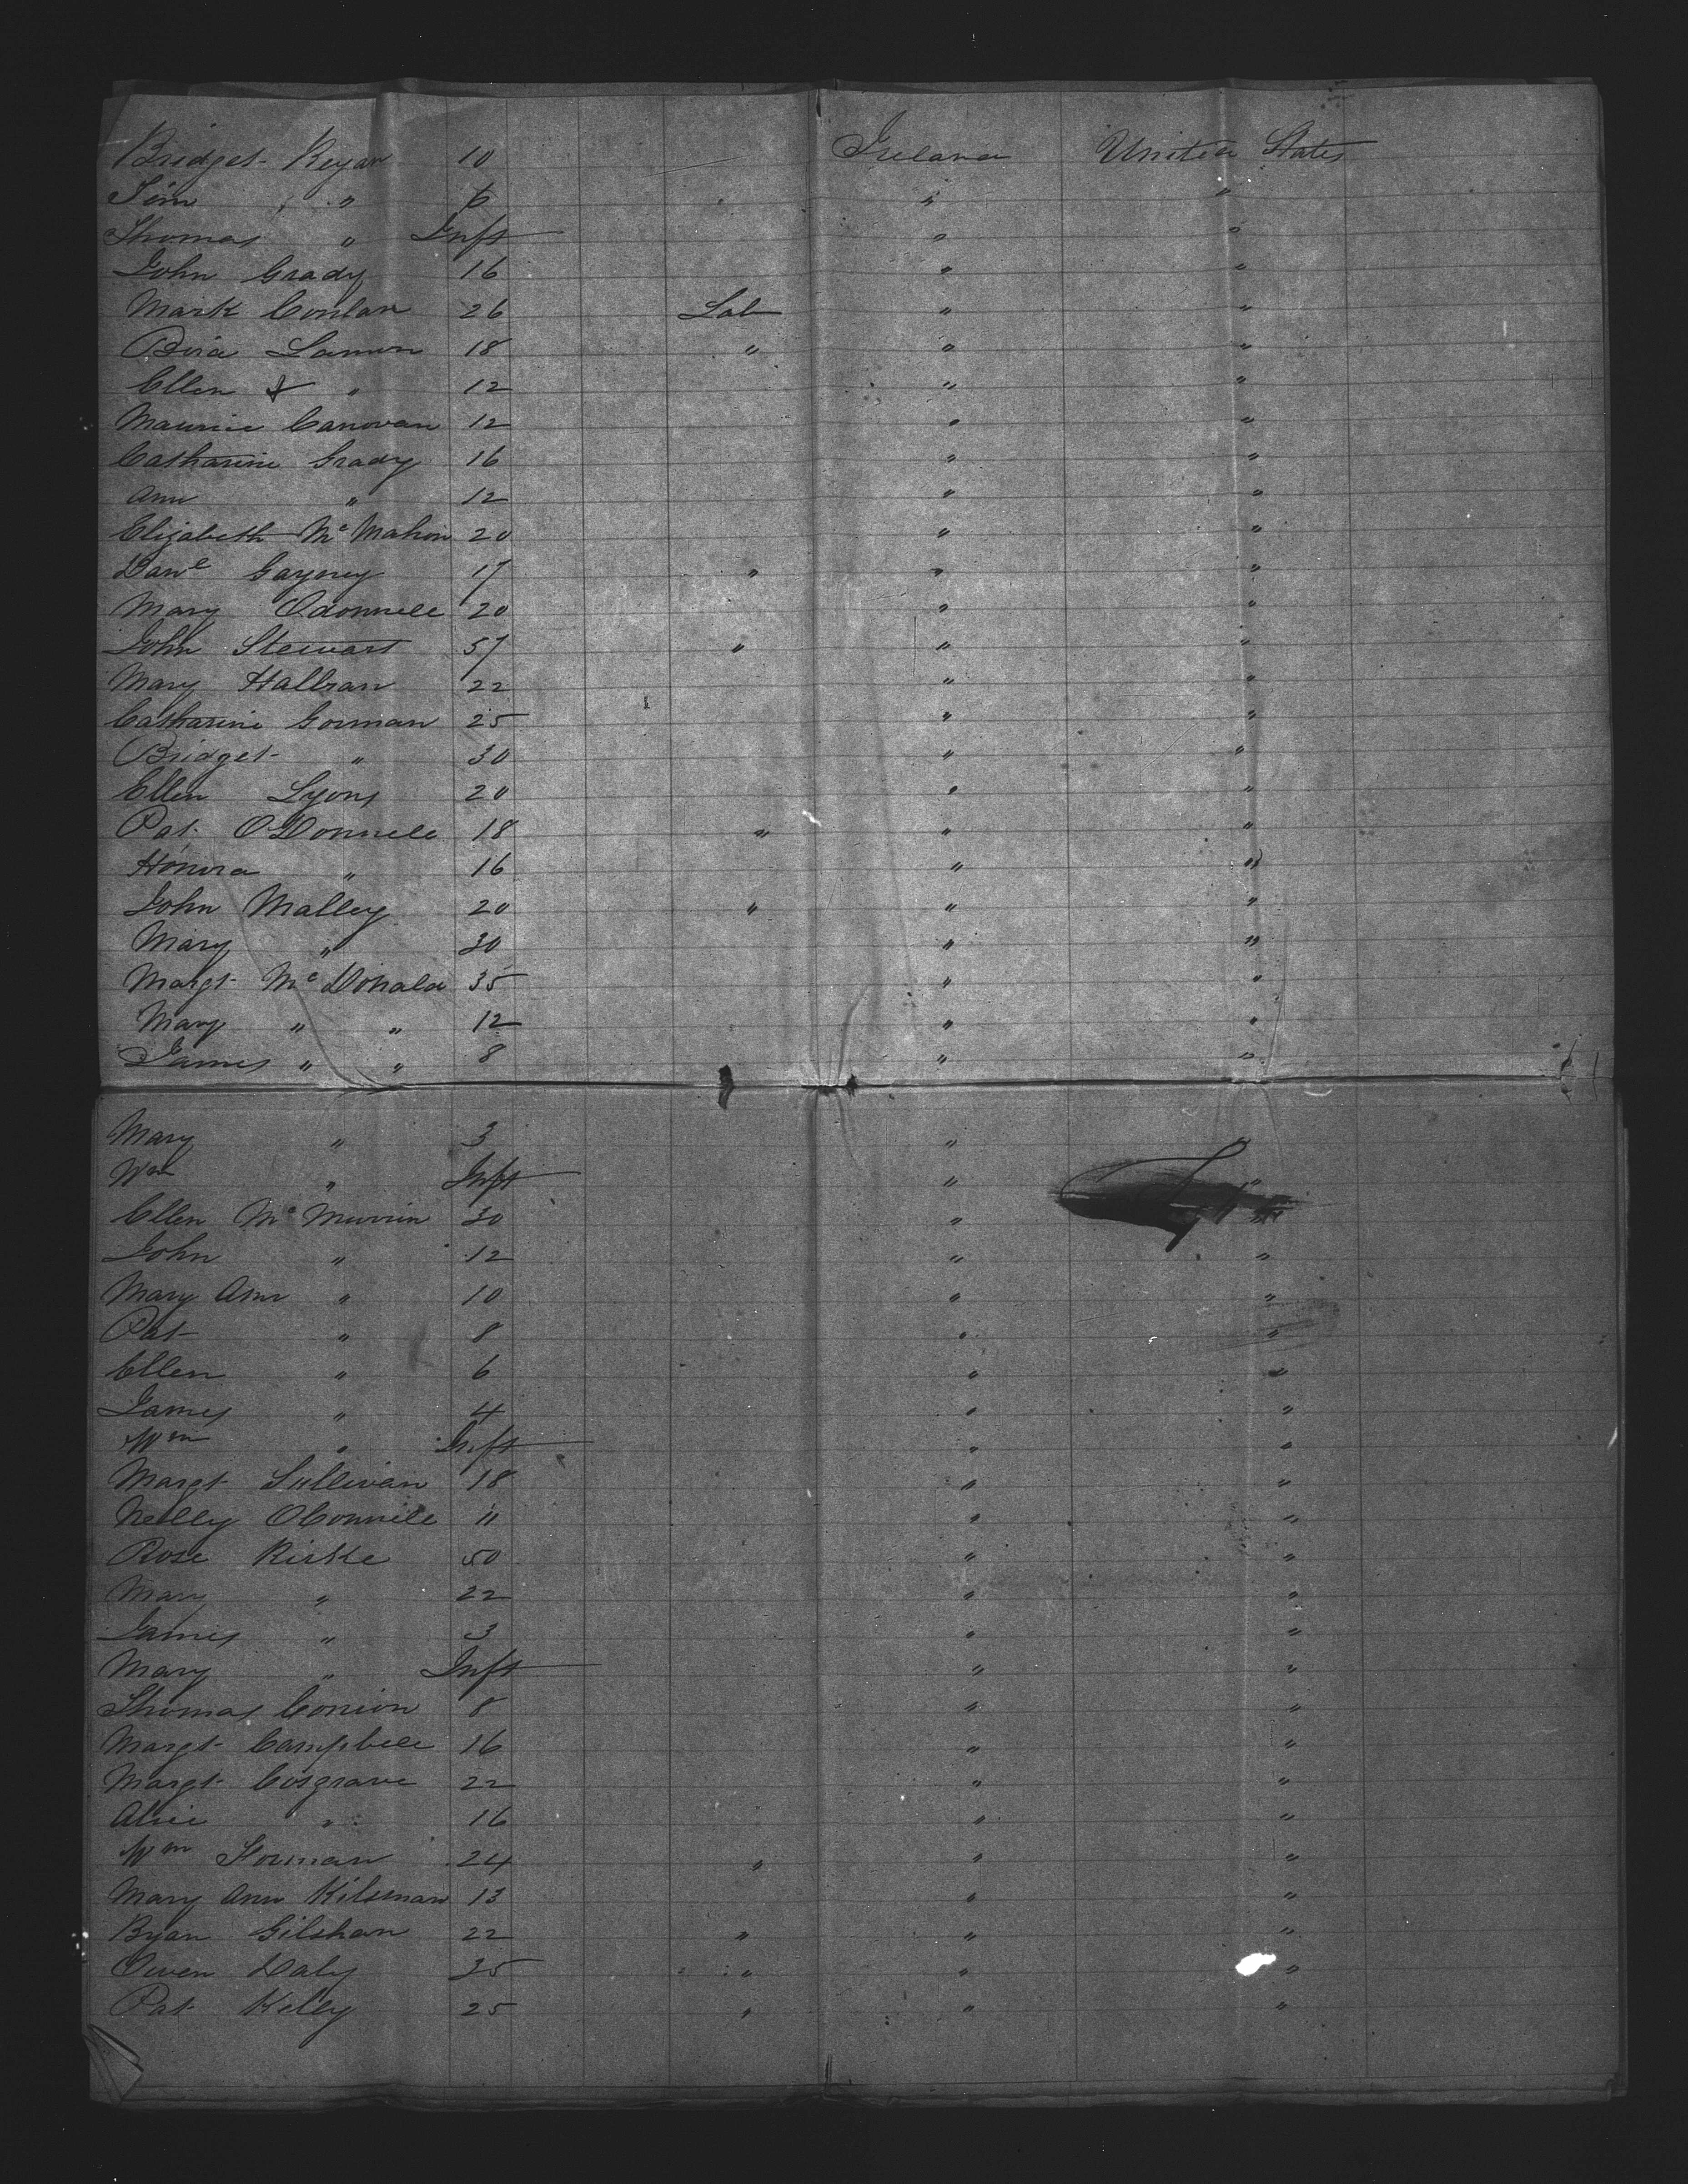 Bridget Regan 10 Ireland United States
Tim " 6 " "
Thomas " Inft " "
John Grady 16 " "
Mark Conlan 26 Lab " "
Lannon 18 " " "
Ellen " 12 " "
Maurice Canovan 12 " "
Catharine Grady 16 " "
Ann " 12 " "
Elizabeth McMahon 20 " "
Danl 17 " " "
Mary Odonnell 20 " "
John Stewart 57 " " "
Mary Hallran 22 " "
Catharine Gorman 25 " "
Bridget " 30 " "
Ellen Lyons 20 " "
Pat O'Donnell 18 " " "
Honora " 16 " "
John Malley 20 " " "
Mary " 30 " "
Margt McDonald 35 " "
Mary " " 12 " "
James " " 8 " "
Mary " 3 " "
Wm " Inft " "
Ellen 30 " "
John " 12 " "
Mary Ann " 10 " "
Pat " 8 " "
Ellen " 6 " "
James " 4 " "
Wm " Inft " "
Margt Sullivan 18 " "
Nelly OConnell 11 " "
Rose 50 " "
Mary " 22 " "
James " 3 " "
Mary " Inft " "
Thomas 8 " "
Margt Campbell 16 " "
Margt Cosgrave 22 " "
Alice " 16 " "
Wm 24 " " "
Mary Ann 13 " "
Gilshan 22 " " "
Owen Daly 35 " " "
Pat Kelly 25 " " "